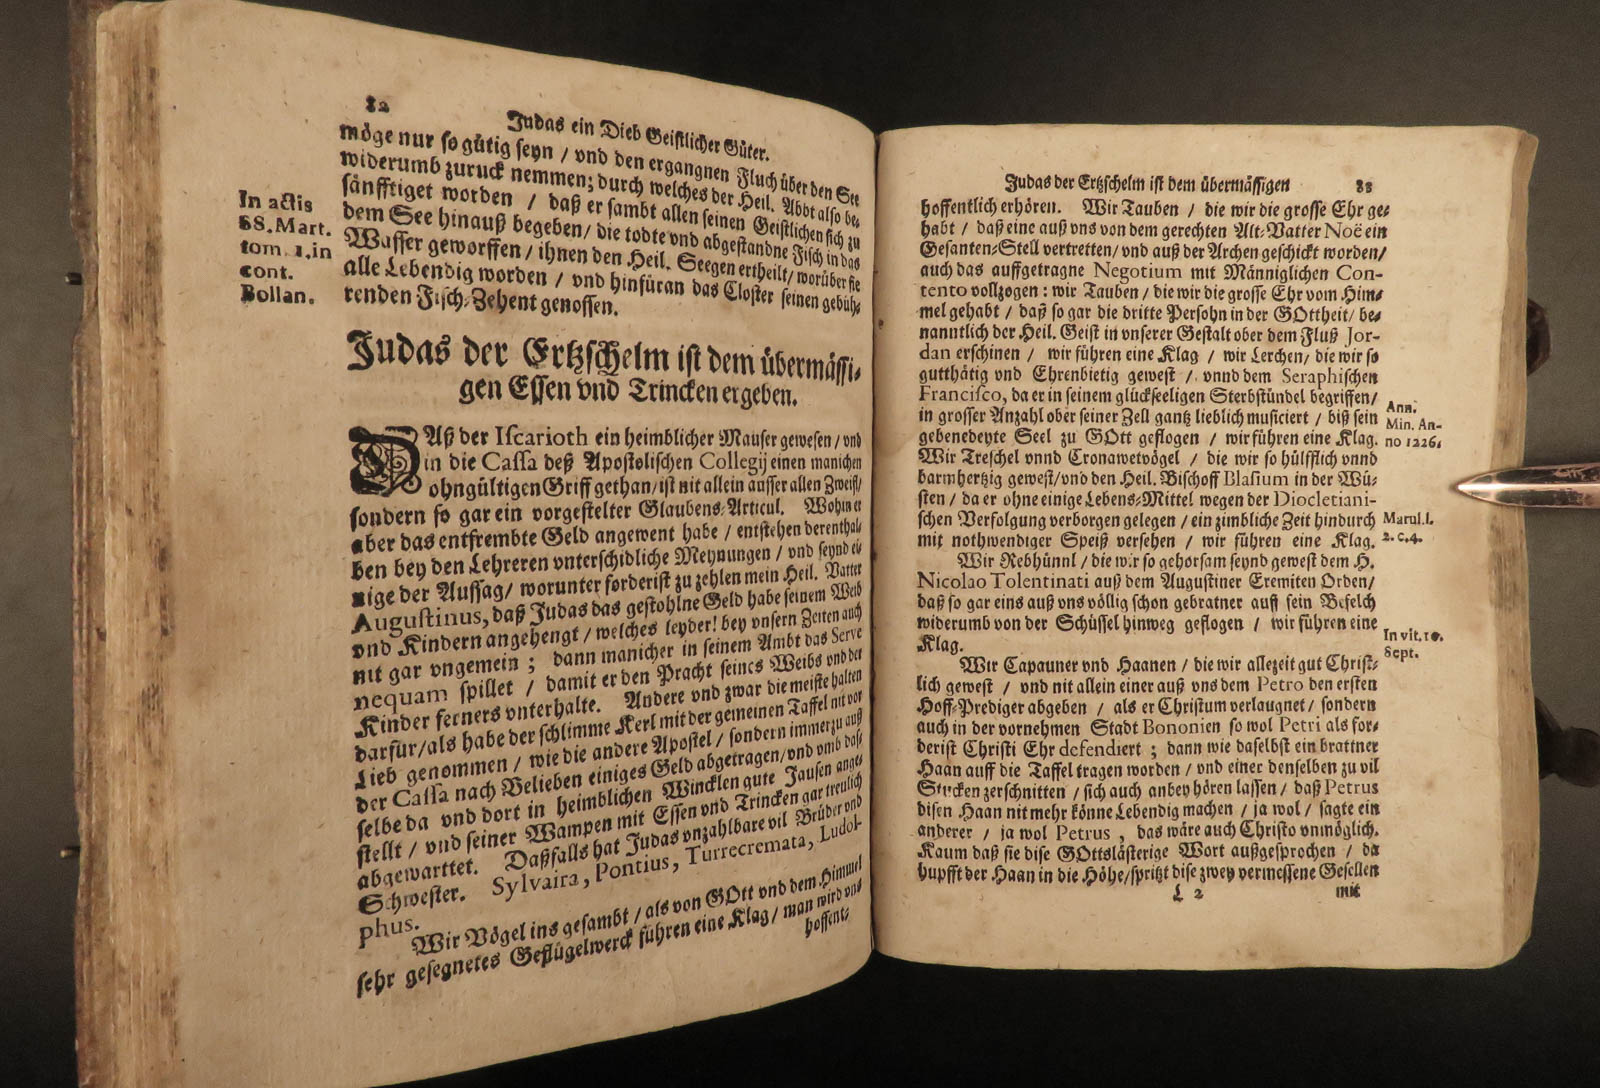 82
Judas ein Dieb Geistlicher Güter.
möge nur so gütig seyn / vnd den ergangnen Fluch über den See
widerumb zuruck nemmen; durch welches der Heil. Abbt also be-
sänfftiget worden / daß er sambt allen seinen Geistlichen sich zu
dem See hinauß begeben / die todte vnd abgestandne Fisch in das
Wasser geworffen / ihnen den Heil. Seegen ertheilt / worüber sie
alle Lebendig worden / vnd hinfüran das Closter seinen gebüh-
renden Fisch-Zehent genossen.
In actis
S8. Mart.
tom. 1. in
cont.
Bollan.
Judas der Ertzschelm ist dem übermässi-
gen Essen vnd Trincken ergeben.
DAß der Iscarioth ein heimblicher Mauser gewesen / vnd
in die Cassa deß Apostolischen Collegij einen manichen
ohngültigen Griff gethan / ist nit allein ausser allen Zweifl /
sondern so gar ein vorgestelter Glaubens-Articul. Wohin er
aber das entfrembte Geld angewent habe / entstehen derenthal-
ben bey den Lehreren vnterschidliche Meynungen / vnd seynd ei-
nige der Aussag / worunter forderist zu zehlen mein Heil. Vatter
Augustinus, daß Judas das gestohlne Geld habe seinem Weib
vnd Kindern angehengt / welches leyder! bey vnsern Zeiten auch
nit gar vngemein ; dann manicher in seinem Ambt das Serve
nequam spillet / damit er den Pracht seines Weibs vnd der
Kinder ferners vnterhalte. Andere vnd zwar die meiste halten
darfür / als habe der schlimme Kerl mit der gemeinen Taffel nit vor
Lieb genommen / wie die andere Apostel / sondern immerzu auß
der Cassa nach Belieben einiges Geld abgetragen / vnd vmb das-
selbe da vnd dort in heimblichen Wincklen gute Jausen anges
stellt / vnd seiner Wampen mit Essen vnd Trincken gar treulich
abgewarttet. Daßfalls hat Judas vnzahlbare vil Brüder vnd
Schwester. Sylvaira, Pontius, Turrecremata, Ludol-
phus.
Wir Vögel ins gesambt / als von GOtt vnd dem Himmel
sehr gesegnetes Geflügelwerck führen eine Klag / man wird vns
hoffent-
Judas der Ertzschelm ist dem übermässigen 83
hoffentlich erhören. Wir Tauben / die wir die grosse Ehr ge-
habt / daß eine auß vns von dem gerechten Alt-Vatter Noë ein
Gesanten-Stell vertretten / vnd auß der Archen geschickt worden /
auch das auffgetragne Negotium mit Männiglichen Con-
tento vollzogen : wir Tauben / die wir die grosse Ehr vom Him-
mel gehabt / daß so gar die dritte Persohn in der GOttheit / be-
nanntlich der Heil. Geist in vnserer Gestalt ober dem Fluß Jor-
dan erschinen / wir führen eine Klag / wir Lerchen / die wir so
gutthätig vnd Ehrenbietig gewest / vnnd dem Seraphischen
Francisco, da er in seinem glückseeligen Sterbstündel begriffen /
in grosser Anzahl ober seiner Zell gantz lieblich musiciert / biß sein
gebenedeyte Seel zu GOtt geflogen / wir führen eine Klag.
Wir Treschel vnnd Cronawetvögel / die wir so hülfflich vnnd
barmhertzig gewest / vnd den Heil. Bischoff Blasium in der Wü-
sten / da er ohne einige Lebens-Mittel wegen der Diocletiani-
schen Verfolgung verborgen gelegen / ein zimbliche Zeit hindurch
mit nothwendiger Speiß versehen / wir führen eine Klag.
Wir Rebhünnl / die wir so gehorsam seynd gewest dem H.
Nicolao Tolentinati auß dem Augustiner Eremiten Orden /
daß so gar eins auß vns völlig schon gebratner auff sein Befelch
widerumb von der Schüssel hinweg geflogen / wir führen eine
Klag.
Wir Capauner vnd Haanen / die wir allezeit gut Christ-
lich gewest / vnd nit allein einer auß vns dem Petro den ersten
Hoff-Prediger abgeben / als er Christum verlaugnet / sondern
auch in der vornehmen Stadt Bononien so wol Petri als for-
derist Christi Ehr defendiert ; dann wie daselbst ein brattner
Haan auff die Taffel tragen worden / vnd einer denselben zu vil
Stucken zerschnitten / sich auch anbey hören lassen / daß Petrus
disen Haan nit mehr könne Lebendig machen / ja wol / sagte ein
anderer / ja wol Petrus , das wäre auch Christo vnmöglich.
Kaum daß sie dise GOttslästerige Wort außgesprochen / da
hupfft der Haan in die Höhe / spritzt dise zwey vermessene Gesellen
L 2 mit
Ann.
Min. An-
no 1226.
Marul. l.
2. c. 4.
In vit. 10.
Sept.